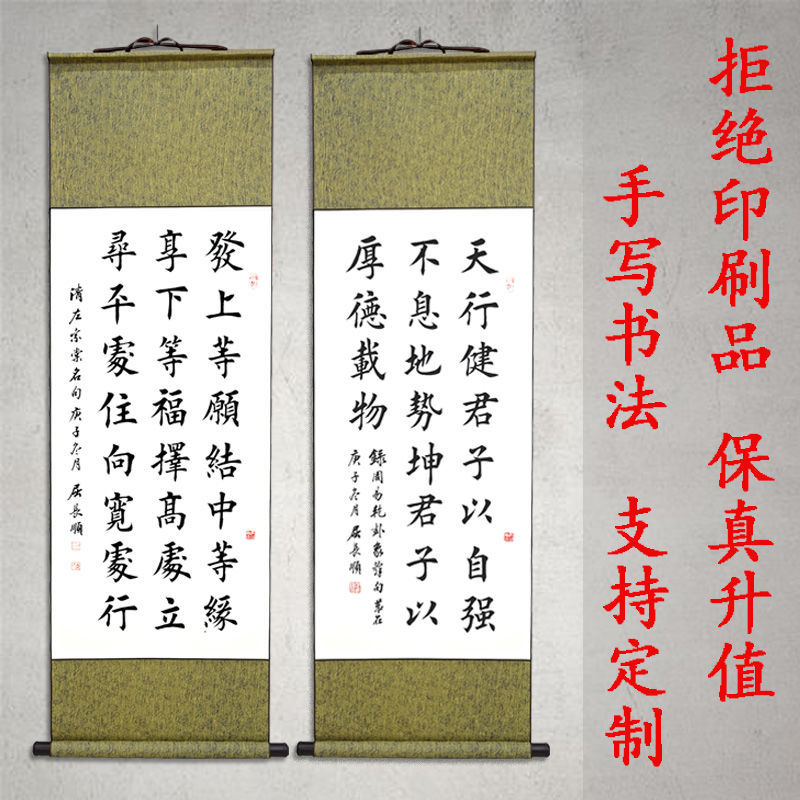 拒绝印刷品 保真升值
手写书法 支持定制
天行健君子以自强
不息地勢坤君子以
厚德載物
錄周易乾卦象辭句
庚子冬月 屈長順
發上等願結中等緣
享下等福擇高處立
尋平處住向寬處行
清左宗棠名句 庚子冬月 屈長順